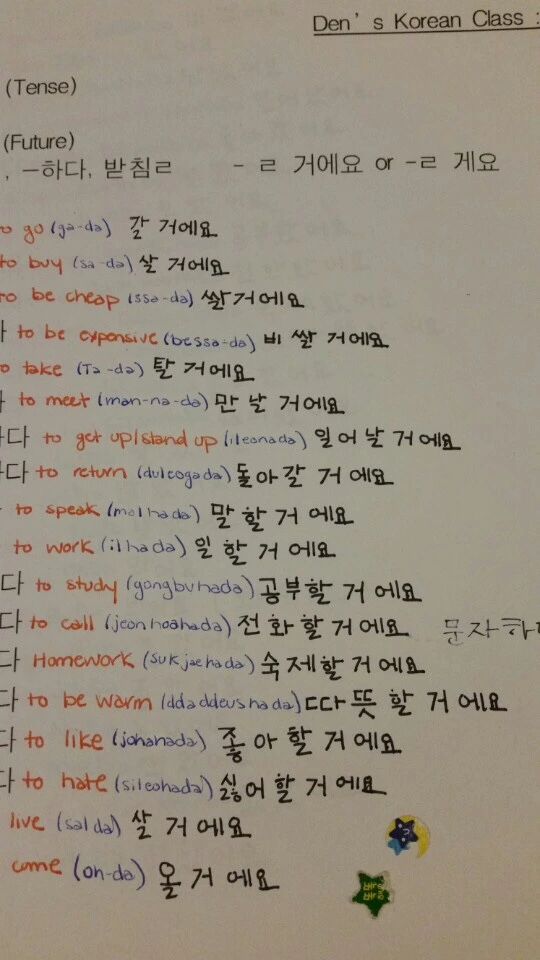 Den's Korean Class :
(Tense)
(Future)
, –하다, 받침ㄹ - ㄹ 거에요 or -ㄹ 게요
to go (ga-da) 갈 거에요
to buy (sa-da) 살 거에요
to be cheap (ssa-da) 쌀 거에요
to be expensive (bessa-da) 비 쌀 거에요
to take (Ta-da) 탈 거에요
to meet (man-na-da) 만 날 거에요
다 to get up/stand up (ileonada) 일 어 날 거 에요
다 to return (duleogada) 돌아갈 거 에요
to speak (malhada) 말 할 거 에요
to work (ilhada) 일 할 거 에요
다 to study (gongbuhada) 공부할 거 에요
다 to call (jeonhoahada) 전 화 할 거 에요 문자하다
다 Homework (sukjaehada) 숙 제할 거 에요
다 to be warm (ddaddeushada) 따 뜻 할 거 에요
다 to like (johahada) 좋 아 할 거 에요
다 to hate (sileohada) 싫어 할 거 에요
live (salda) 살 거 에요
come (oh-da) 올 거 에요